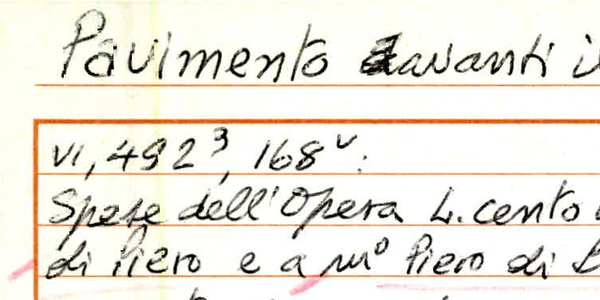 Pavimento davanti i
VI, 492³, 168ᵛ:
Spese dell'Opera L. cento
di Piero e a mº Piero di B